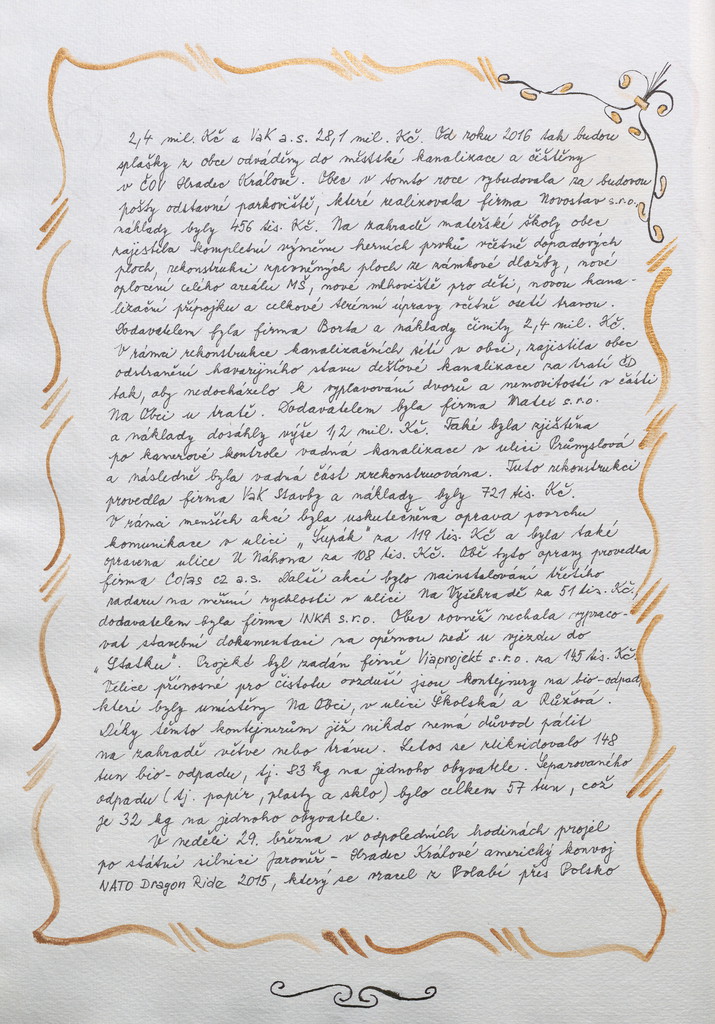 2,4 mil. Kč a VaK a.s. 28,1 mil. Kč. Od roku 2016 tak budou
splašky z obce odváděny do městské kanalizace a čištěny
v ČOV Hradec Králové. Obec v tomto roce vybudovala za budovou
pošty odstavné parkoviště, které realizovala firma Novostav s.r.o,
náklady byly 456 tis. Kč. Na zahradě mateřské školy obec
zajistila kompletní výměnu herních prvků včetně dopadových
ploch, rekonstrukci zpevněných ploch ze zámkové dlažby, nové
oplocení celého areálu MŠ, nové mlhoviště pro děti, novou kana-
lizační přípojku a celkové terénní úpravy včetně osetí travou.
Dodavatelem byla firma Borta a náklady činily 2,4 mil. Kč.
V rámci rekonstrukce kanalizačních sítí v obci, zajistila obec
odstranění havarijního stavu dešťové kanalizace za tratí ČD
tak, aby nedocházelo k vyplavování dvorů a nemovitostí v části
Na Obci u tratě. Dodavatelem byla firma Matex s.r.o.
a náklady dosáhly výše 1,2 mil. Kč. Také byla zjištěna
po kamerové kontrole vadná kanalizace v ulici Průmyslová
a následně byla vadná část zrekonstruována. Tuto rekonstrukci
provedla firma VaK Stavby a náklady byly 721 tis. Kč.
V rámci menších akcí byla uskutečněna oprava povrchu
komunikace v ulici „Šupák" za 119 tis. Kč a byla také
opravena ulice U Náhona za 108 tis. Kč. Obě tyto opravy provedla
firma Colas cz a.s. Další akcí bylo nainstalování třetího
radaru na měření rychlosti v ulici Na Vyšehradě za 51 tis. Kč,
dodavatelem byla firma INKA s.r.o. Obec rovněž nechala vypraco-
vat stavební dokumentaci na opěrnou zeď u vjezdu do
„Statku". Projekt byl zadán firmě Viaprojekt s.r.o. za 145 tis. Kč.
Velice přínosné pro čistotu ovzduší jsou kontejnery na bio-odpad,
které byly umístěny Na Obci, v ulici Školská a Růžová.
Díky těmto kontejnerům již nikdo nemá důvod pálit
na zahradě větve nebo trávu. Letos se zlikvidovalo 148
tun bio-odpadu, tj. 83 kg na jednoho obyvatele. Separovaného
odpadu (tj. papír, plasty a sklo) bylo celkem 57 tun, což
je 32 kg na jednoho obyvatele.
V neděli 29. března v odpoledních hodinách projel
po státní silnici Jaroměř - Hradec Králové americký konvoj
NATO Dragon Ride 2015, který se vracel z Pobaltí přes Polsko